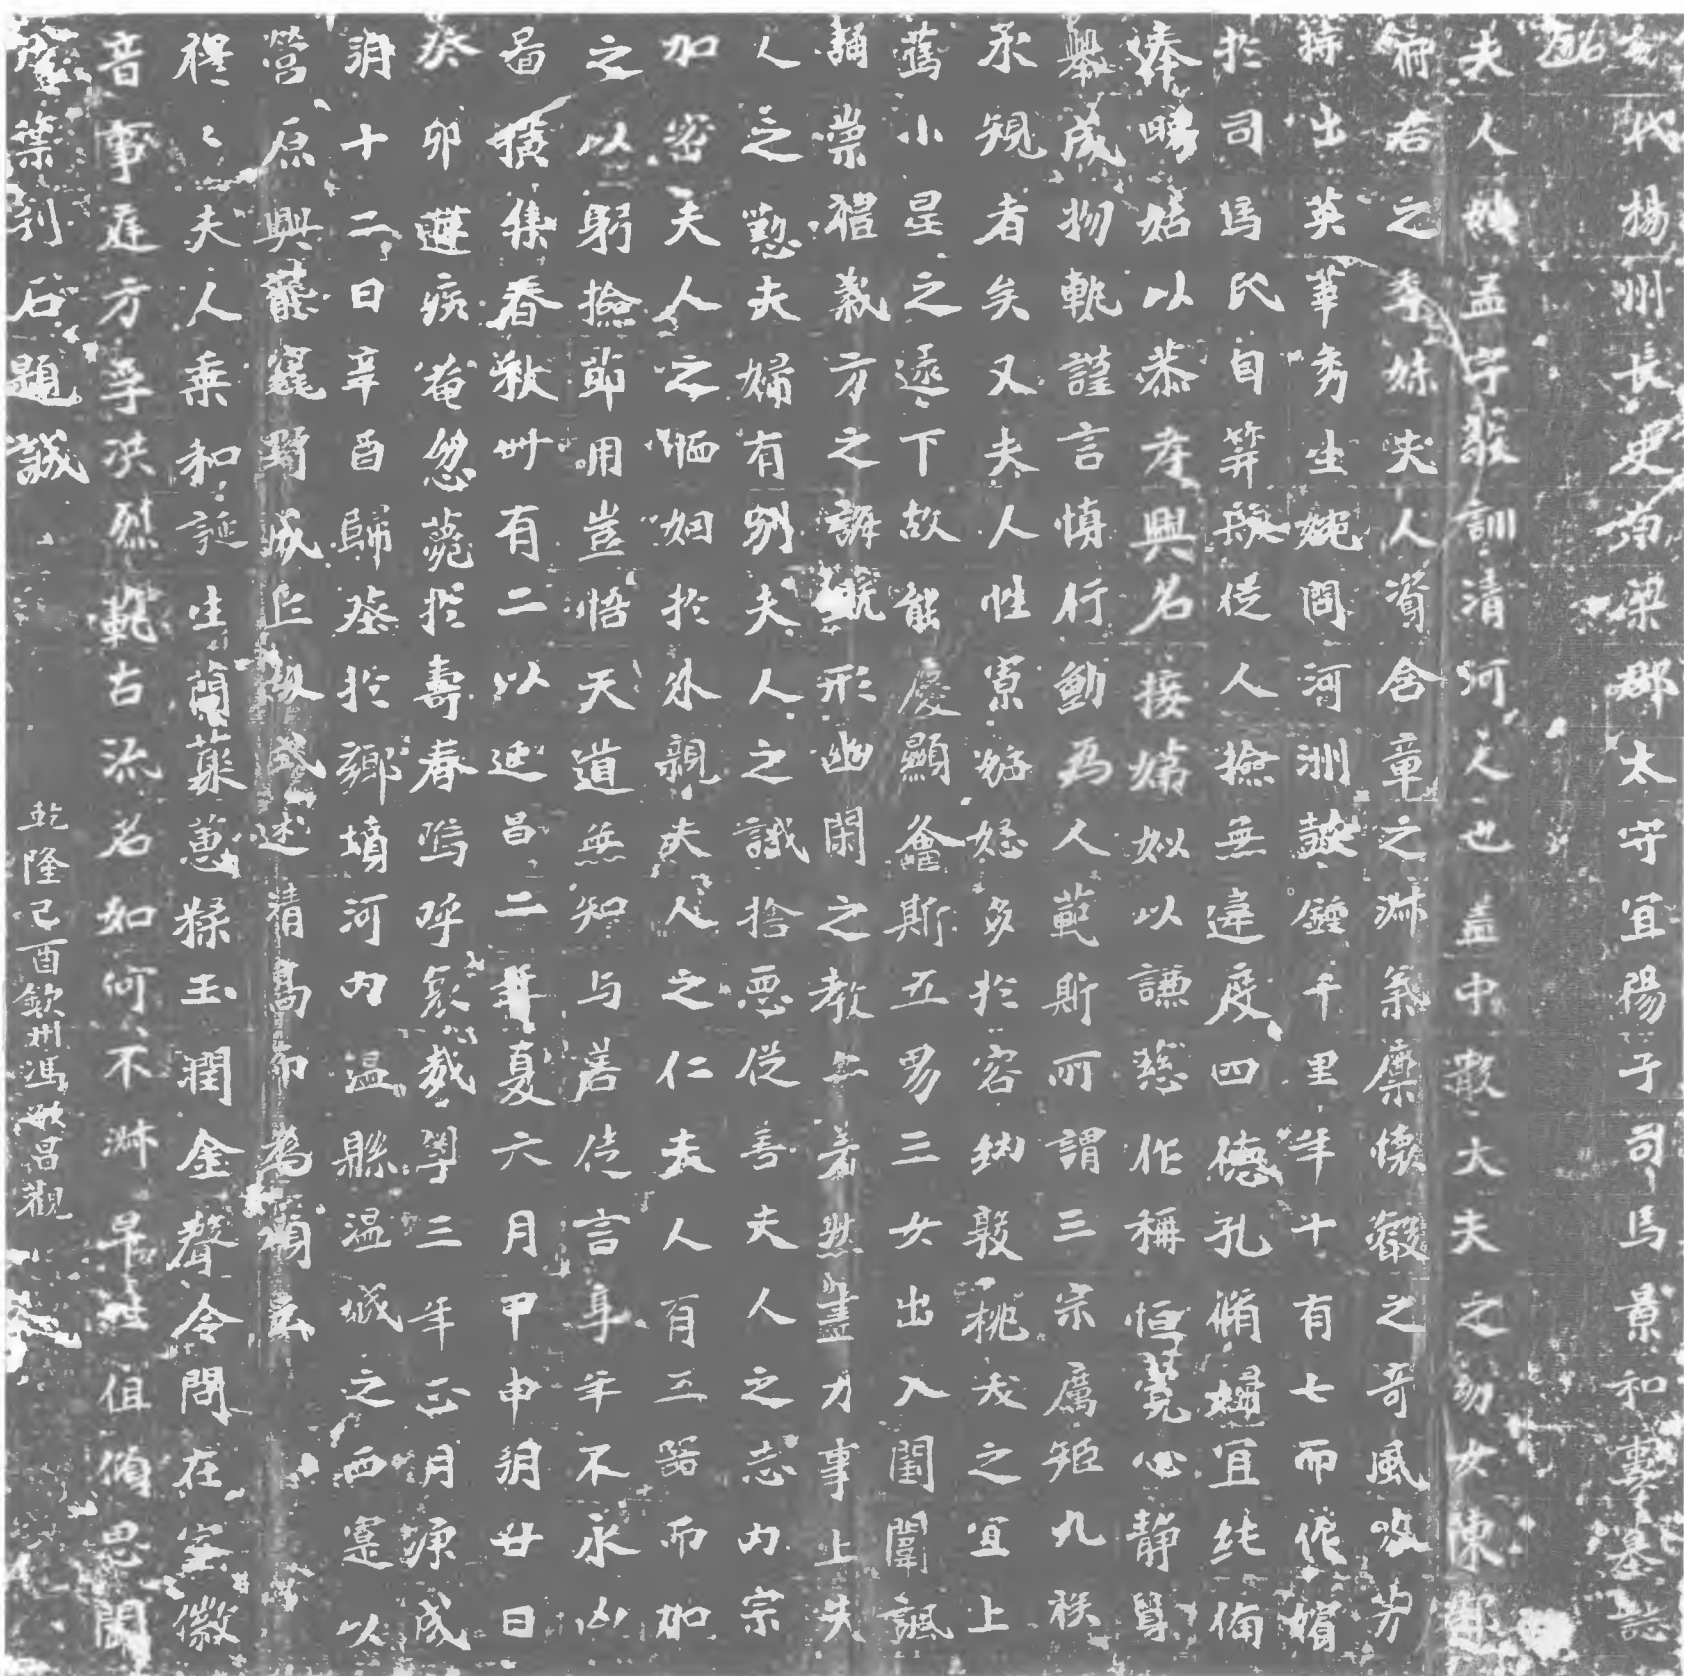 魏代楊洲長史南梁郡太守宜陽子司馬景和妻墓誌
銘
夫人姓孟字敬訓清河人也盖中散大夫之幼女陳郡
府君之季妹夫人資含章之淑氣稟懷叡之奇風芬芳
特出英華秀生婉問河洲鼓鍾千里年十有七而作嬪
於司馬氏自笄髮從人撿無違度四德孔脩婦宜純備
奉舅姑以恭孝興名接娣姒以謙慈作稱恒寬心靜質
舉成物軌謹言慎行動為人範斯所謂三宗厲矩九族
承規者矣又夫人性寡妬忌多於容納敦桃夭之宜上
篤小星之逮下故能慶顯螽斯五男三女出入閨闈諷
誦崇禮義方之誨既形幽閑之教亦著然盡力事上夫
人之懃夫婦有別夫人之識捨惡從善夫人之志內宗
加密夫人之恤姻於外親夫人之仁夫人有五器而加
之以躬撿節用豈悟天道無知与善徒言享年不永凶
啚橫集春秋卌有二以延昌二年夏六月甲申朔廿日
癸卯遘疾奄忽薨於壽春嗚呼哀哉粵三年正月庚戌
朔十二日辛酉歸葬於鄉墳河內温縣温城之西寔以
營原興壟窆野成丘故式述清高而為頌云
穆〻夫人乘和誕生蘭蘂蕙糅玉潤金聲令問在室徽
音事庭方孚洪烈範古流名如何不淑早世徂傾思聞
後葉刊石題誠
乾隆己酉欽州馮敏昌觀